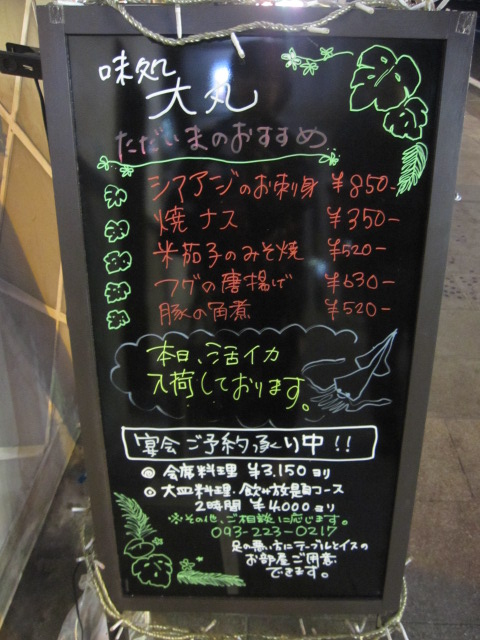 味処
大丸
ただいまのおすすめ
シマアジのお刺身 ¥850-
焼ナス ¥350-
米茄子のみそ焼 ¥520-
フグの唐揚げ ¥630-
豚の角煮 ¥520-
本日、活イカ
入荷しております。
宴会ご予約承り中!!
◎会席料理 ¥3,150ヨリ
◎大皿料理.飲み放題コース
2時間 ¥4,000ヨリ
※その他、ご相談に応じます。
093-223-0217
足の悪い方にテーブルとイスの
お部屋ご用意
できます。